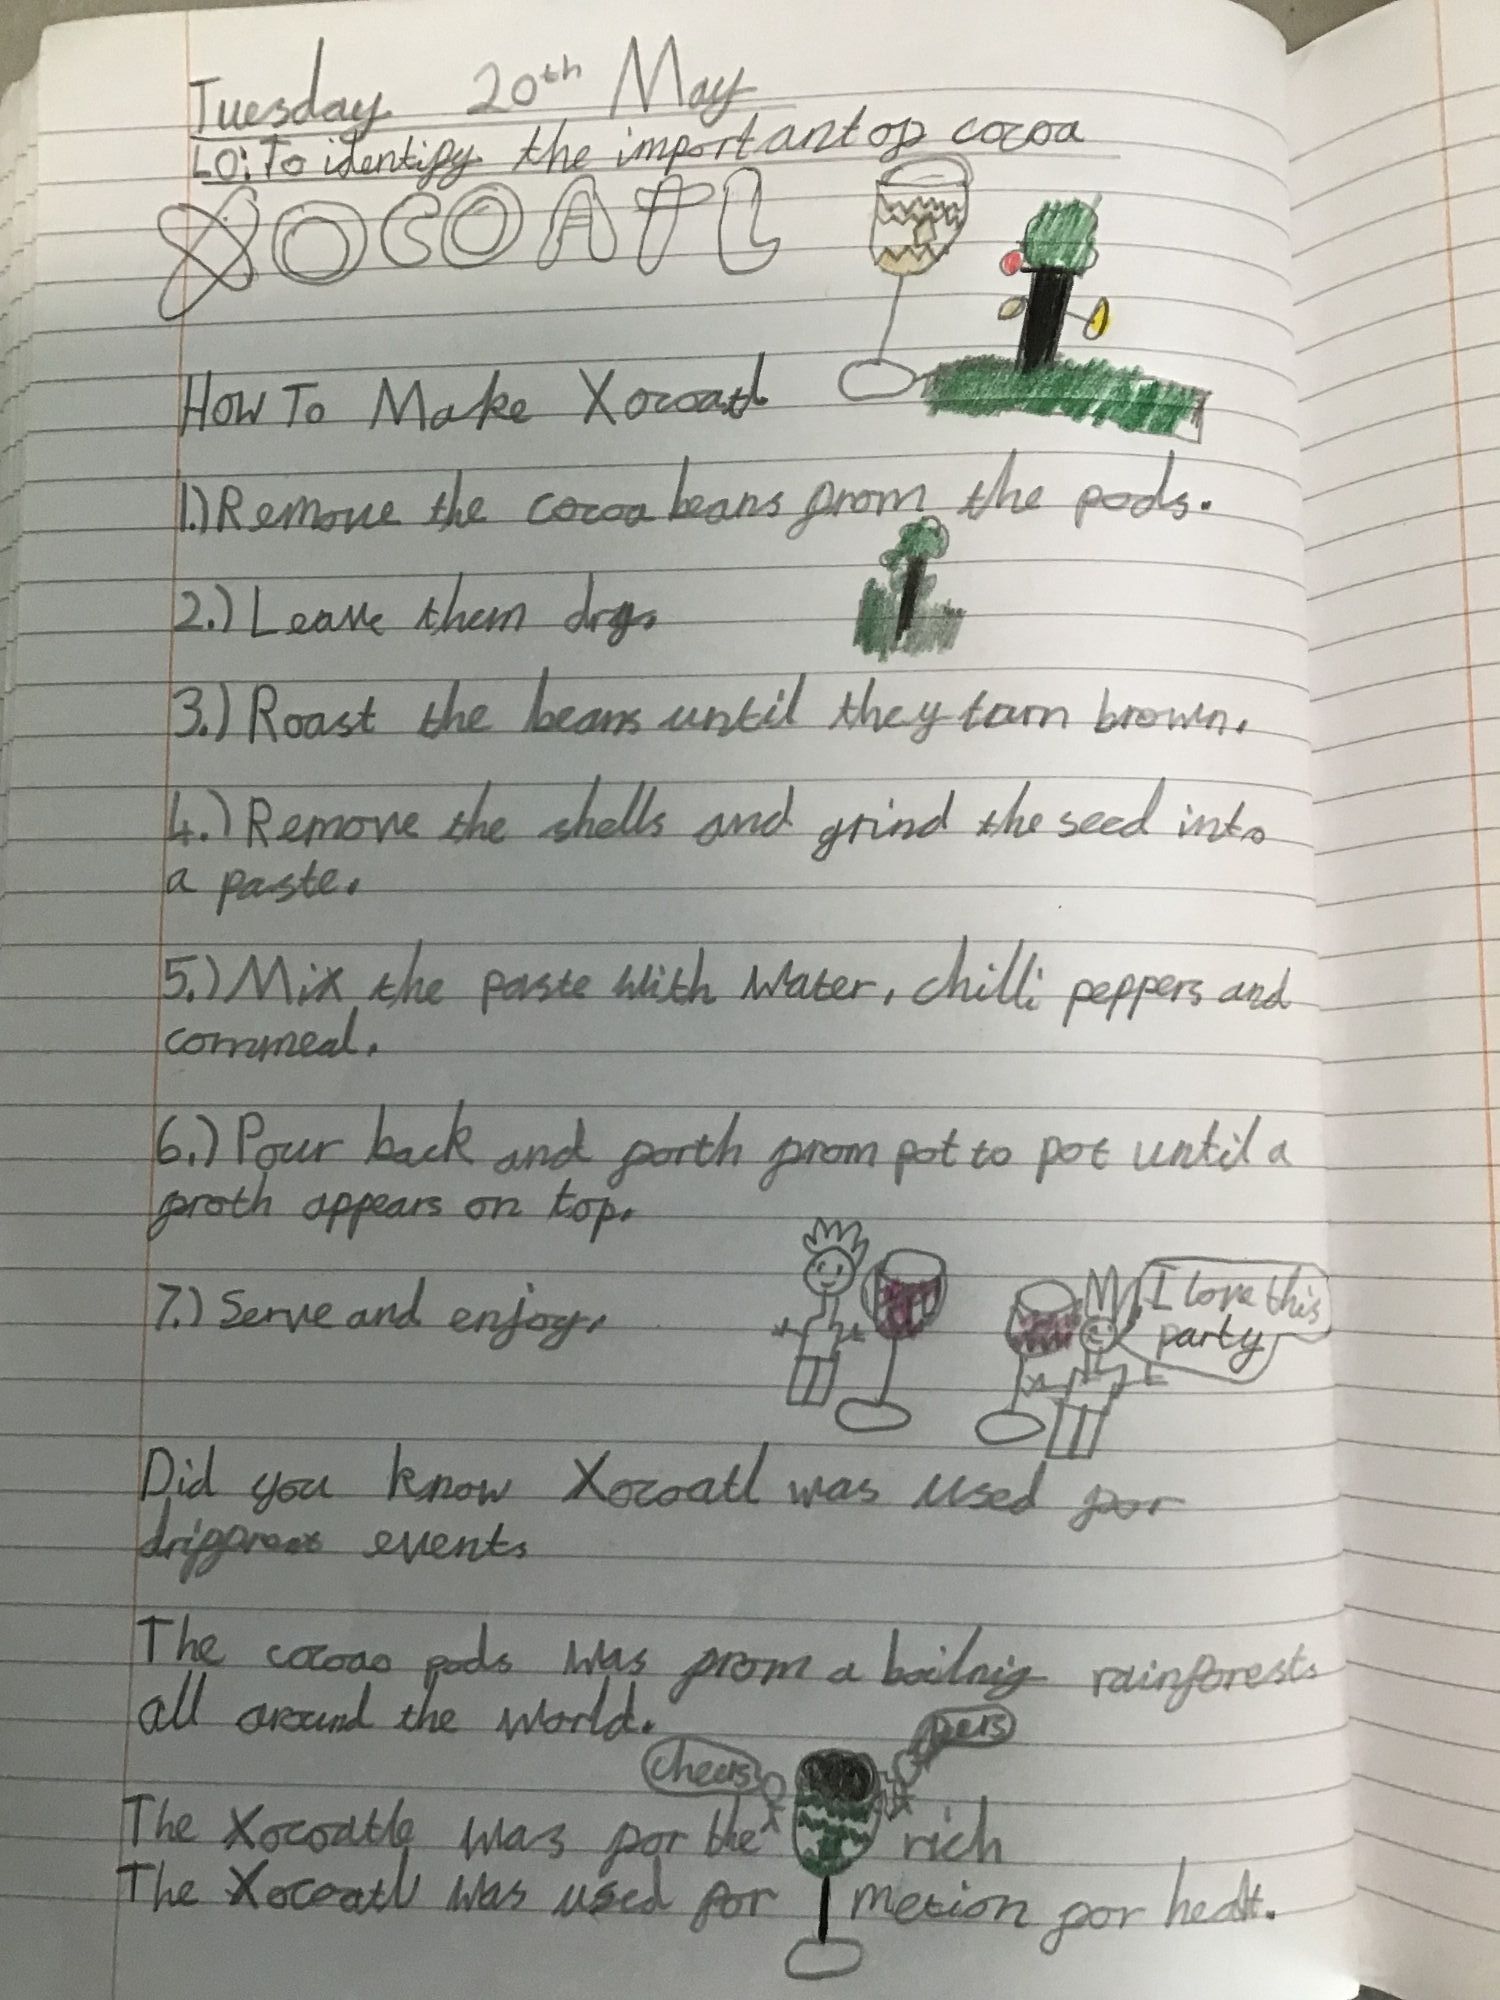 Tuesday 20th May
LO: To identify the important op cocoa
XOCOATL
How To Make Xocoatl
1.) Remove the cocoa beans from the pods.
2.) Leave them dry.
3.) Roast the beans until they turn brown.
4.) Remove the shells and grind the seed into
a paste.
5.) Mix the paste with water, chilli peppers and
cornmeal.
6.) Pour back and forth from pot to pot until a
froth appears on top.
7.) Serve and enjoy.
I love this
party
Did you know Xocoatl was used for
events
The cocoao pods was from a boilnig rainforests
all around the world.
cheers
The Xocoatle was for the rich
The Xocoatl was used for metion for healt.